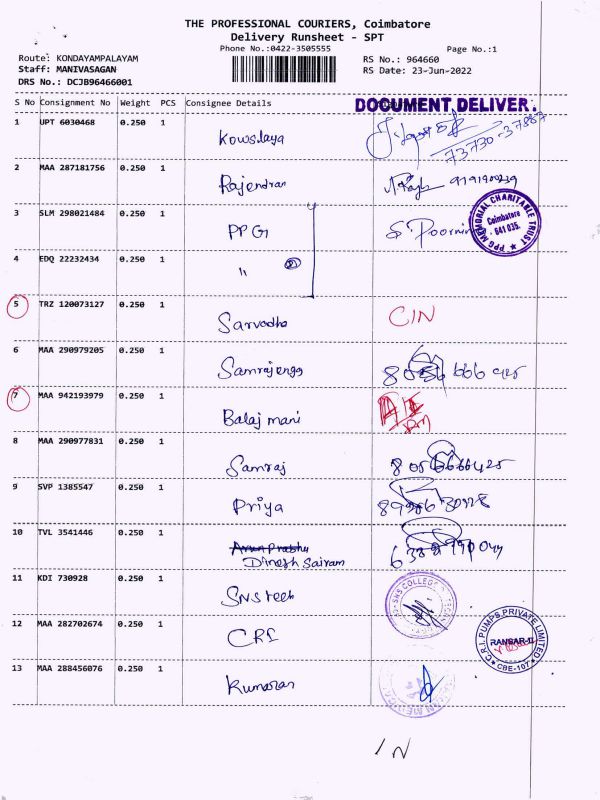 THE PROFESSIONAL COURIERS, Coimbatore
Delivery Runsheet - SPT
Phone No.:0422-3505555
Page No.:1
Route: KONDAYAMPALAYAM
Staff: MANIVASAGAN
DRS No.: DCJB96466001
RS No.: 964660
RS Date: 23-Jun-2022
S No Consignment No Weight PCS Consignee Details DOCUMENT DELIVER.
1 UPT 6030468 0.250 1 Kowsalaya 73730-37887
2 MAA 287181756 0.250 1 Rajendran
3 SLM 298021484 0.250 1 PPG S. Poorni
PPG MEMORIAL CHARITABLE TRUST
Coimbatore
641 035.
4 EDQ 22232434 0.250 1 " 2
5 TRZ 120073127 0.250 1 Sarvodha CIN
6 MAA 290979205 0.250 1 666 425
7 MAA 942193979 0.250 1 Balaj mani
8 MAA 290977831 0.250 1 Samraj
9 SVP 1385547 0.250 1 Priya
10 TVL 3541446 0.250 1 Arun Prabhu
Dinesh Sairam
11 KDI 730928 0.250 1 SNS Tech
SNS COLLEGE
12 MAA 282702674 0.250 1 CRI
C.R.I. PUMPS PRIVATE LIMITED
CBE-107
13 MAA 288456076 0.250 1 Kumaran
IN